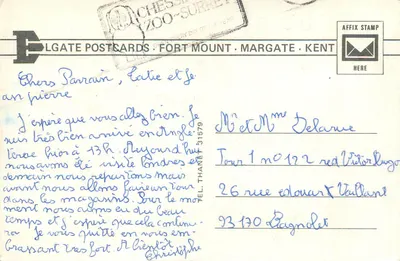 CHESSINGTON
ZOO - SURREY
ELGATE POSTCARDS · FORT MOUNT · MARGATE · KENT
AFFIX STAMP
HERE
TEL. THANET 31579
Chers Parrain, Tatie et Je
an pierre
J'espère que vous allez bien. Je
suis très bien arrivé en Angle
terre hier à 13h. Aujourd'hui
nous avons été visité Londres et
demain nous repartons mais
avant nous allons faire un tour
dans les magasins. Pour le mo
ment nous avons eu du beau
temps et j'espère que cela continu
ra. Je vous quitte en vous em
brassant très fort. A bientôt
Christophe
Mr et Mme Delarue
Tour 1 no 122 red Victor Hugo
26 rue edouart Vaillant
93170 Bagnolet